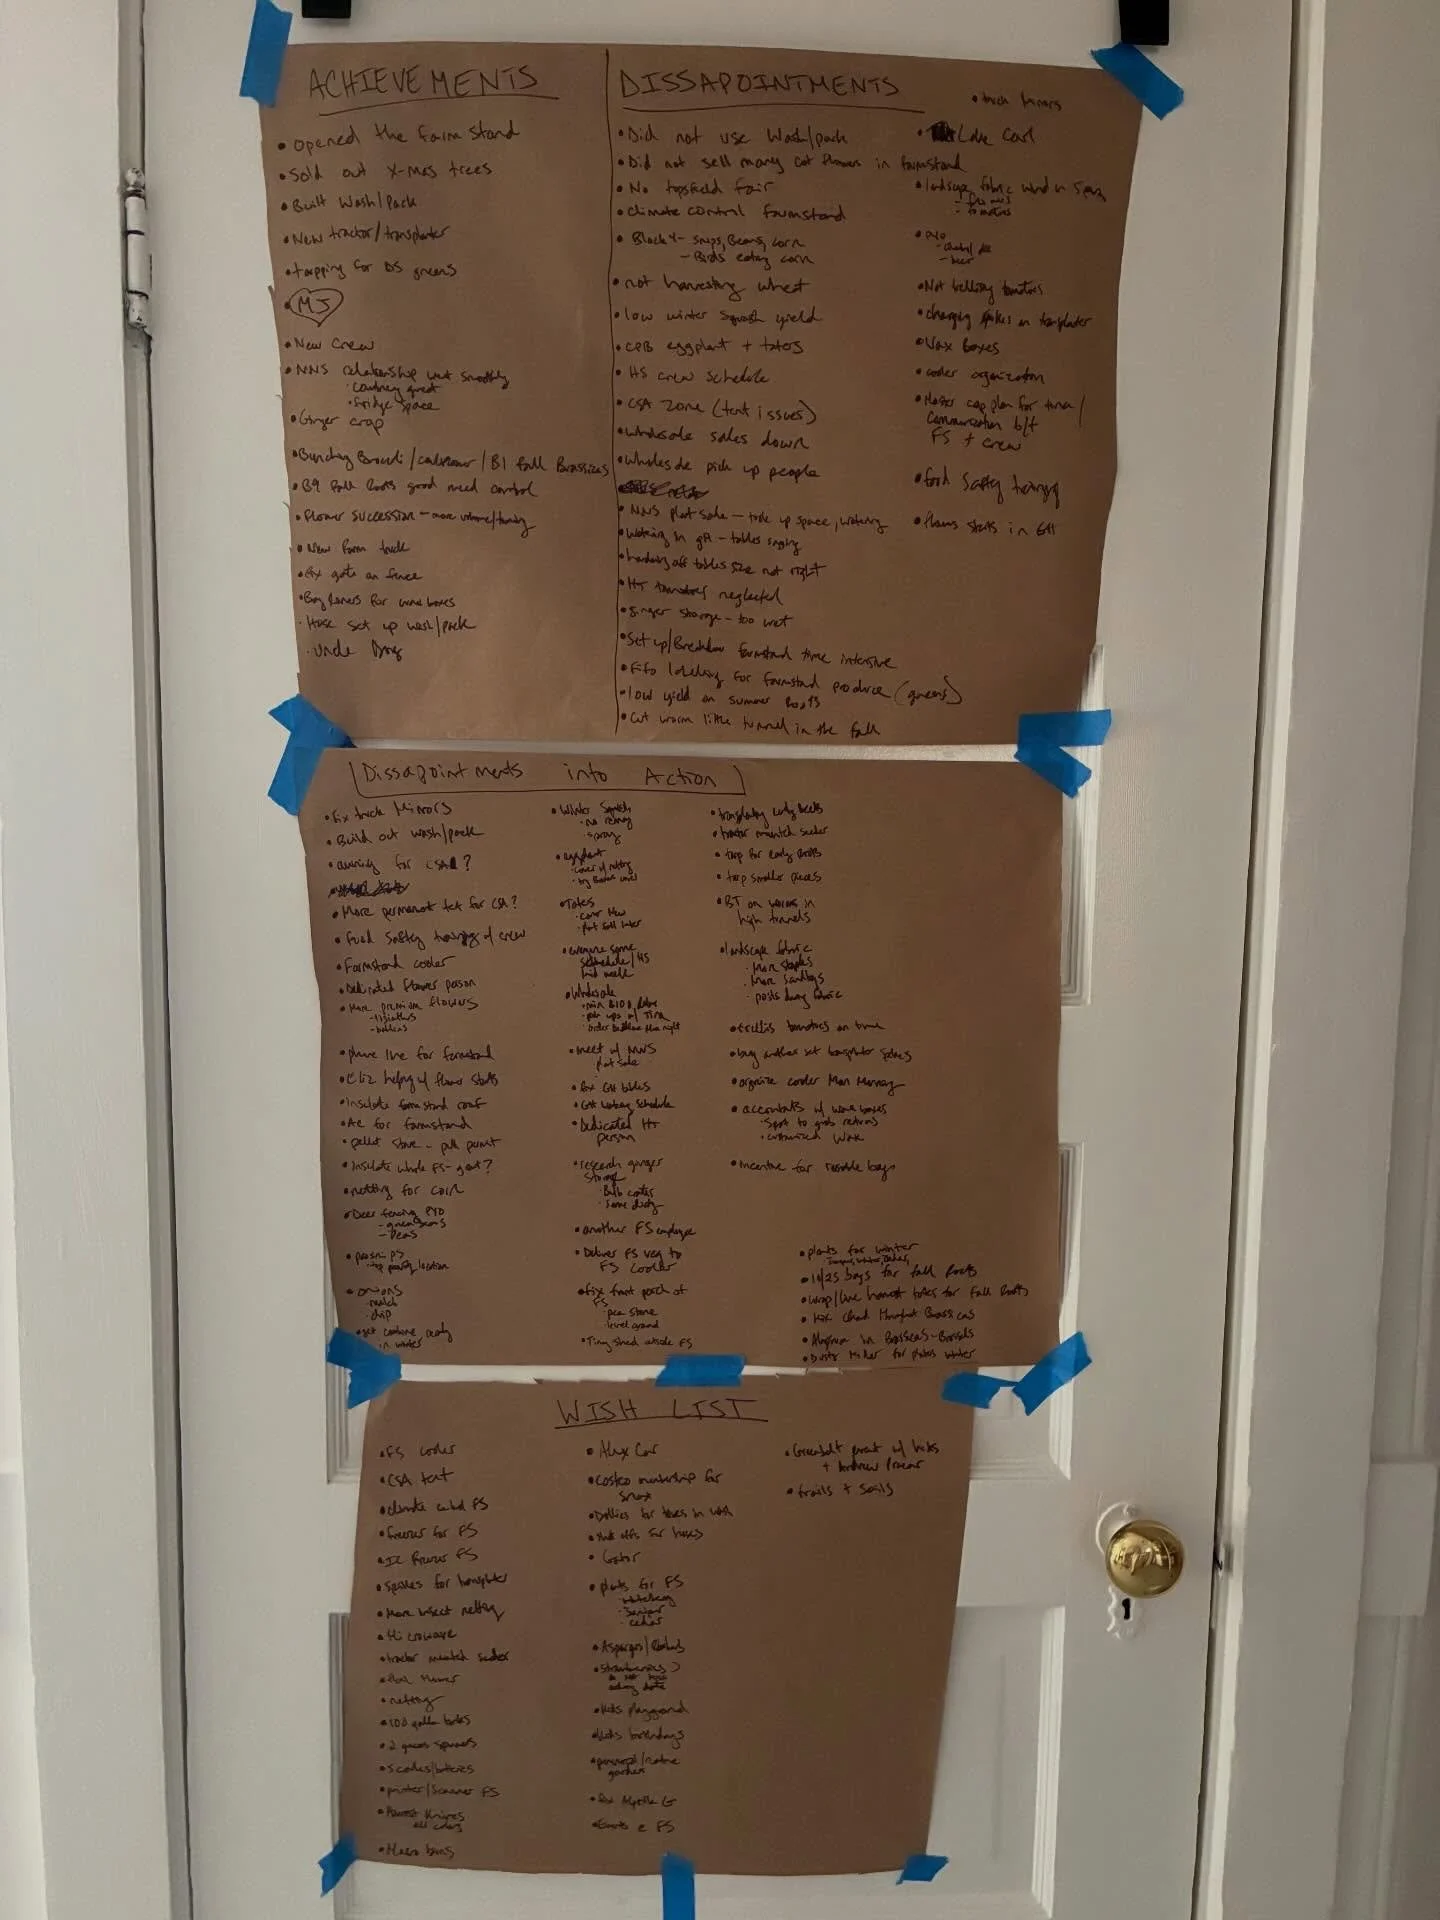 ACHIEVEMENTS
• Opened the farm stand
• Sold out X-mas trees
• Built Wash/Pack
• New tractor/transplanter
• tarpping for DS greens
• MJ
• New Crew
• NNS relationship went smoothly
• Courtney great
• fridge space
• Ginger crop
• Bunching Broccoli/cauliflower/B1 fall Brassicas
• B9 fall Roots good weed control
• flower succession - more volume/
• New farm truck
• fix gate on fence
• Buy liners for wax boxes
• Hose set up wash/pack
• Uncle
DISSAPOINTMENTS
• Did not use Wash/pack
• Did not sell many cut flowers in farmstand
• No topsfield fair
• climate control farmstand
• Block 4 - snaps, Beans, corn
- Birds eating corn
• not harvesting wheat
• low winter squash yield
• CPB eggplant + taters
• HS crew schedule
• CSA ZONE (tent issues)
• Wholesale sales down
• Wholesale pick up people
• NNS plant sale - took up space, watering
• Watering in GH - tables sagging
• hardening off tables size not right
• HT tomatoes neglected
• ginger storage - too wet
• Set up/Breakdown farmstand time intensive
• FiFo labeling for farmstand produce (greens)
• low yield on summer Roots
• Cut worm little tunnel in the fall
• truck mirrors
• Lake Carl
• landscape fabric wind in
- tomatoes
• PYO
- deer
• Not trellising tomatoes
• changing spikes on transplanter
• Wax Boxes
• cooler organization
• Master crop plan for
Communication b/t
FS + crew
• food safety training
• flower starts in GH
Dissapointments into Action
• Fix truck Mirrors
• Build out wash/pack
• awning for CSA?
• More permanent tent for CSA?
• Food Safety training w/ crew
• Farmstand cooler
• Dedicated flower person
• More premium flowers
- lisianthus
• phone line for farmstand
• Eliz helping w/ flower starts
• Insulate farmstand roof
• AC for farmstand
• pellet stove - pull permit
• Insulate whole FS - goat?
• netting for corn
• Deer fencing PYO
- green beans
- Peas
location
• onions
- mulch
- drip
• get combine ready
in winter
• Winter Squash
• spray
• eggplant
• cover w/ netting
• Totes
• everyone same
schedule/HS
mid week
• Wholesale
• min $100
• pick ups w/ Tina
• order deadline the night
• meet w/ NNS
plant sale
• fix GH tables
• GH Watering Schedule
• Dedicated HT
person
• research ginger
storage
• Bulb crates
• Same
• another FS employee
• Deliver FS veg to
FS cooler
• fix front porch at
FS
• pea stone
• level ground
• Tiny shed outside FS
• transplanting early beets
• tractor mounted seeder
• tarp for early Roots
• tarp smaller pieces
• BT on worms in
high tunnels
• landscape fabric
• More staples
• More sandbags
• posts fabric
• trellis tomatoes on time
• buy another set transplanter spikes
• organize cooler Mon Morning
• accountants w/ wax boxes
• Spot to grab returns
• customized Wax
• incentive for reusable bags
• plants for winter
• 10/25 bags for fall Roots
• wrap/line harvest totes for Fall Roots
• in Brassicas - Brussels
• Dusty Miller for plants winter
WISH LIST
• FS cooler
• CSA tent
• climate control FS
• freezer for FS
• Ice Freezer FS
• Spikes for transplanter
• More insect netting
• Microwave
• tractor mounted seeder
• netting
• 100 gallon tanks
• 2 greens spinners
• Scales/batteries
• printer/Scanner FS
• Harvest Knives
all
• Macro bins
• Alex Car
• Costco membership for
snax
• Dollies for totes in wash
• shut offs for hoses
• Gator
• plants for FS
• cedar
• Asparagus/Rhubarb
• Strawberries
• kids playground
• kids birthdays
• perennial/native
garden
• fix
• Events @ FS
• Greenbelt event w/ hikes
• trails + sails